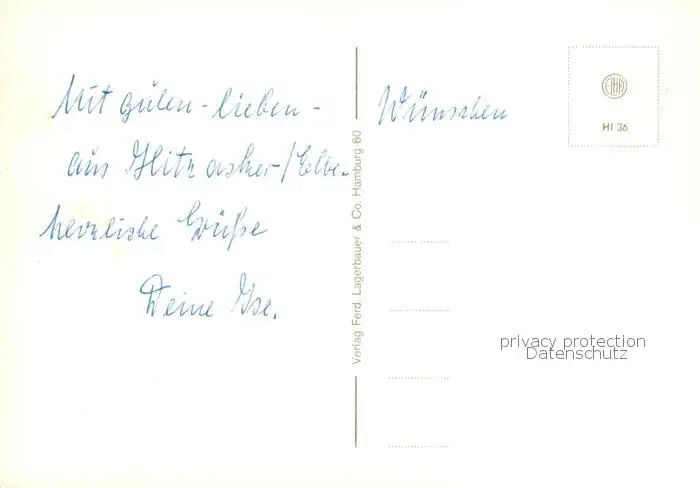 Mit guten - lieben - Wünschen
aus Hitzacker/Elbe -
herzliche Grüße
Deine Ilse.
Verlag Ferd. Lagerbauer & Co. Hamburg 60
HI 36
privacy protection
Datenschutz